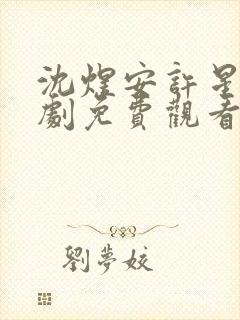 沈煜安許星
劇免費觀看
劉夢姣